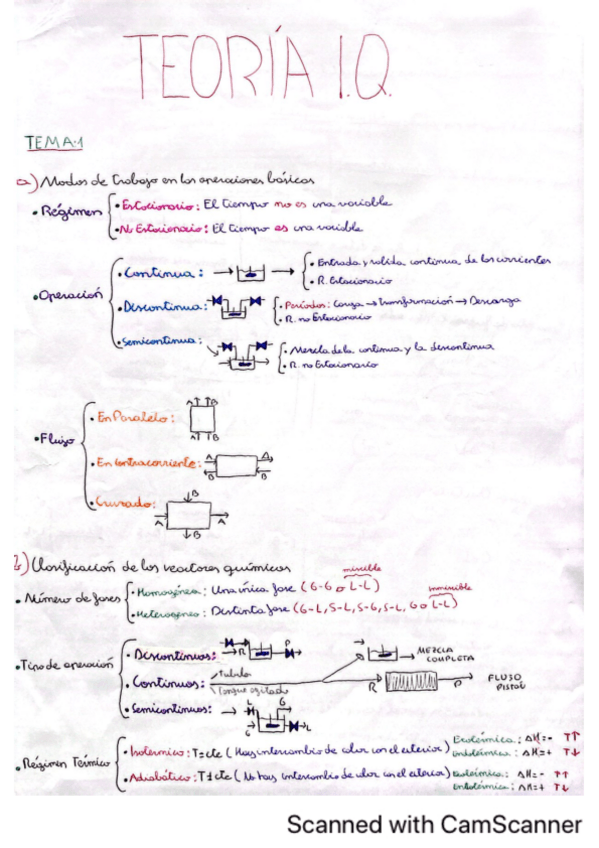 TEORÍA I.Q.
TEMA:1
a) Modos de trabajo en las operaciones básicas
• Régimen
• Estacionario: El tiempo no es una variable
• No Estacionario: El tiempo es una variable
• Operación
• Continua:
• Entrada y salida continua de las corrientes
• R. Estacionario
• Discontinua:
• Períodos: Carga → Transformación → Descarga
• R. no Estacionario
• Semicontinua:
• Mezcla de la continua y la discontinua
• R. no Estacionario
• Flujo
• En Paralelo:
A B
A B
• En Contracorriente:
A A
B B
• Cruzado:
B
A A
B
b) Clasificación de los reactores químicos
miscible
inmiscible
• Número de fases
• Homogénea: Una única fase (G-G o L-L)
• Heterogéneo: Distinta fase (G-L, S-L, S-G, S-L, G o L-L)
• Tipo de operación
• Discontinuos:
R P
MEZCLA COMPLETA
• Continuos:
tubular
Tanque agitado
R P
FLUJO PISTÓN
• Semicontinuos:
L G
G L
• Régimen Térmico
• Isotermico: T=cte (Hay intercambio de calor con el exterior)
Exotérmica: ΔH=- T↑
Endotérmica: ΔH=+ T↓
• Adiabático: T≠cte (No hay intercambio de calor con el exterior)
Exotérmica: ΔH=- T↑
Endotérmica: ΔH=+ T↓
Scanned with CamScanner